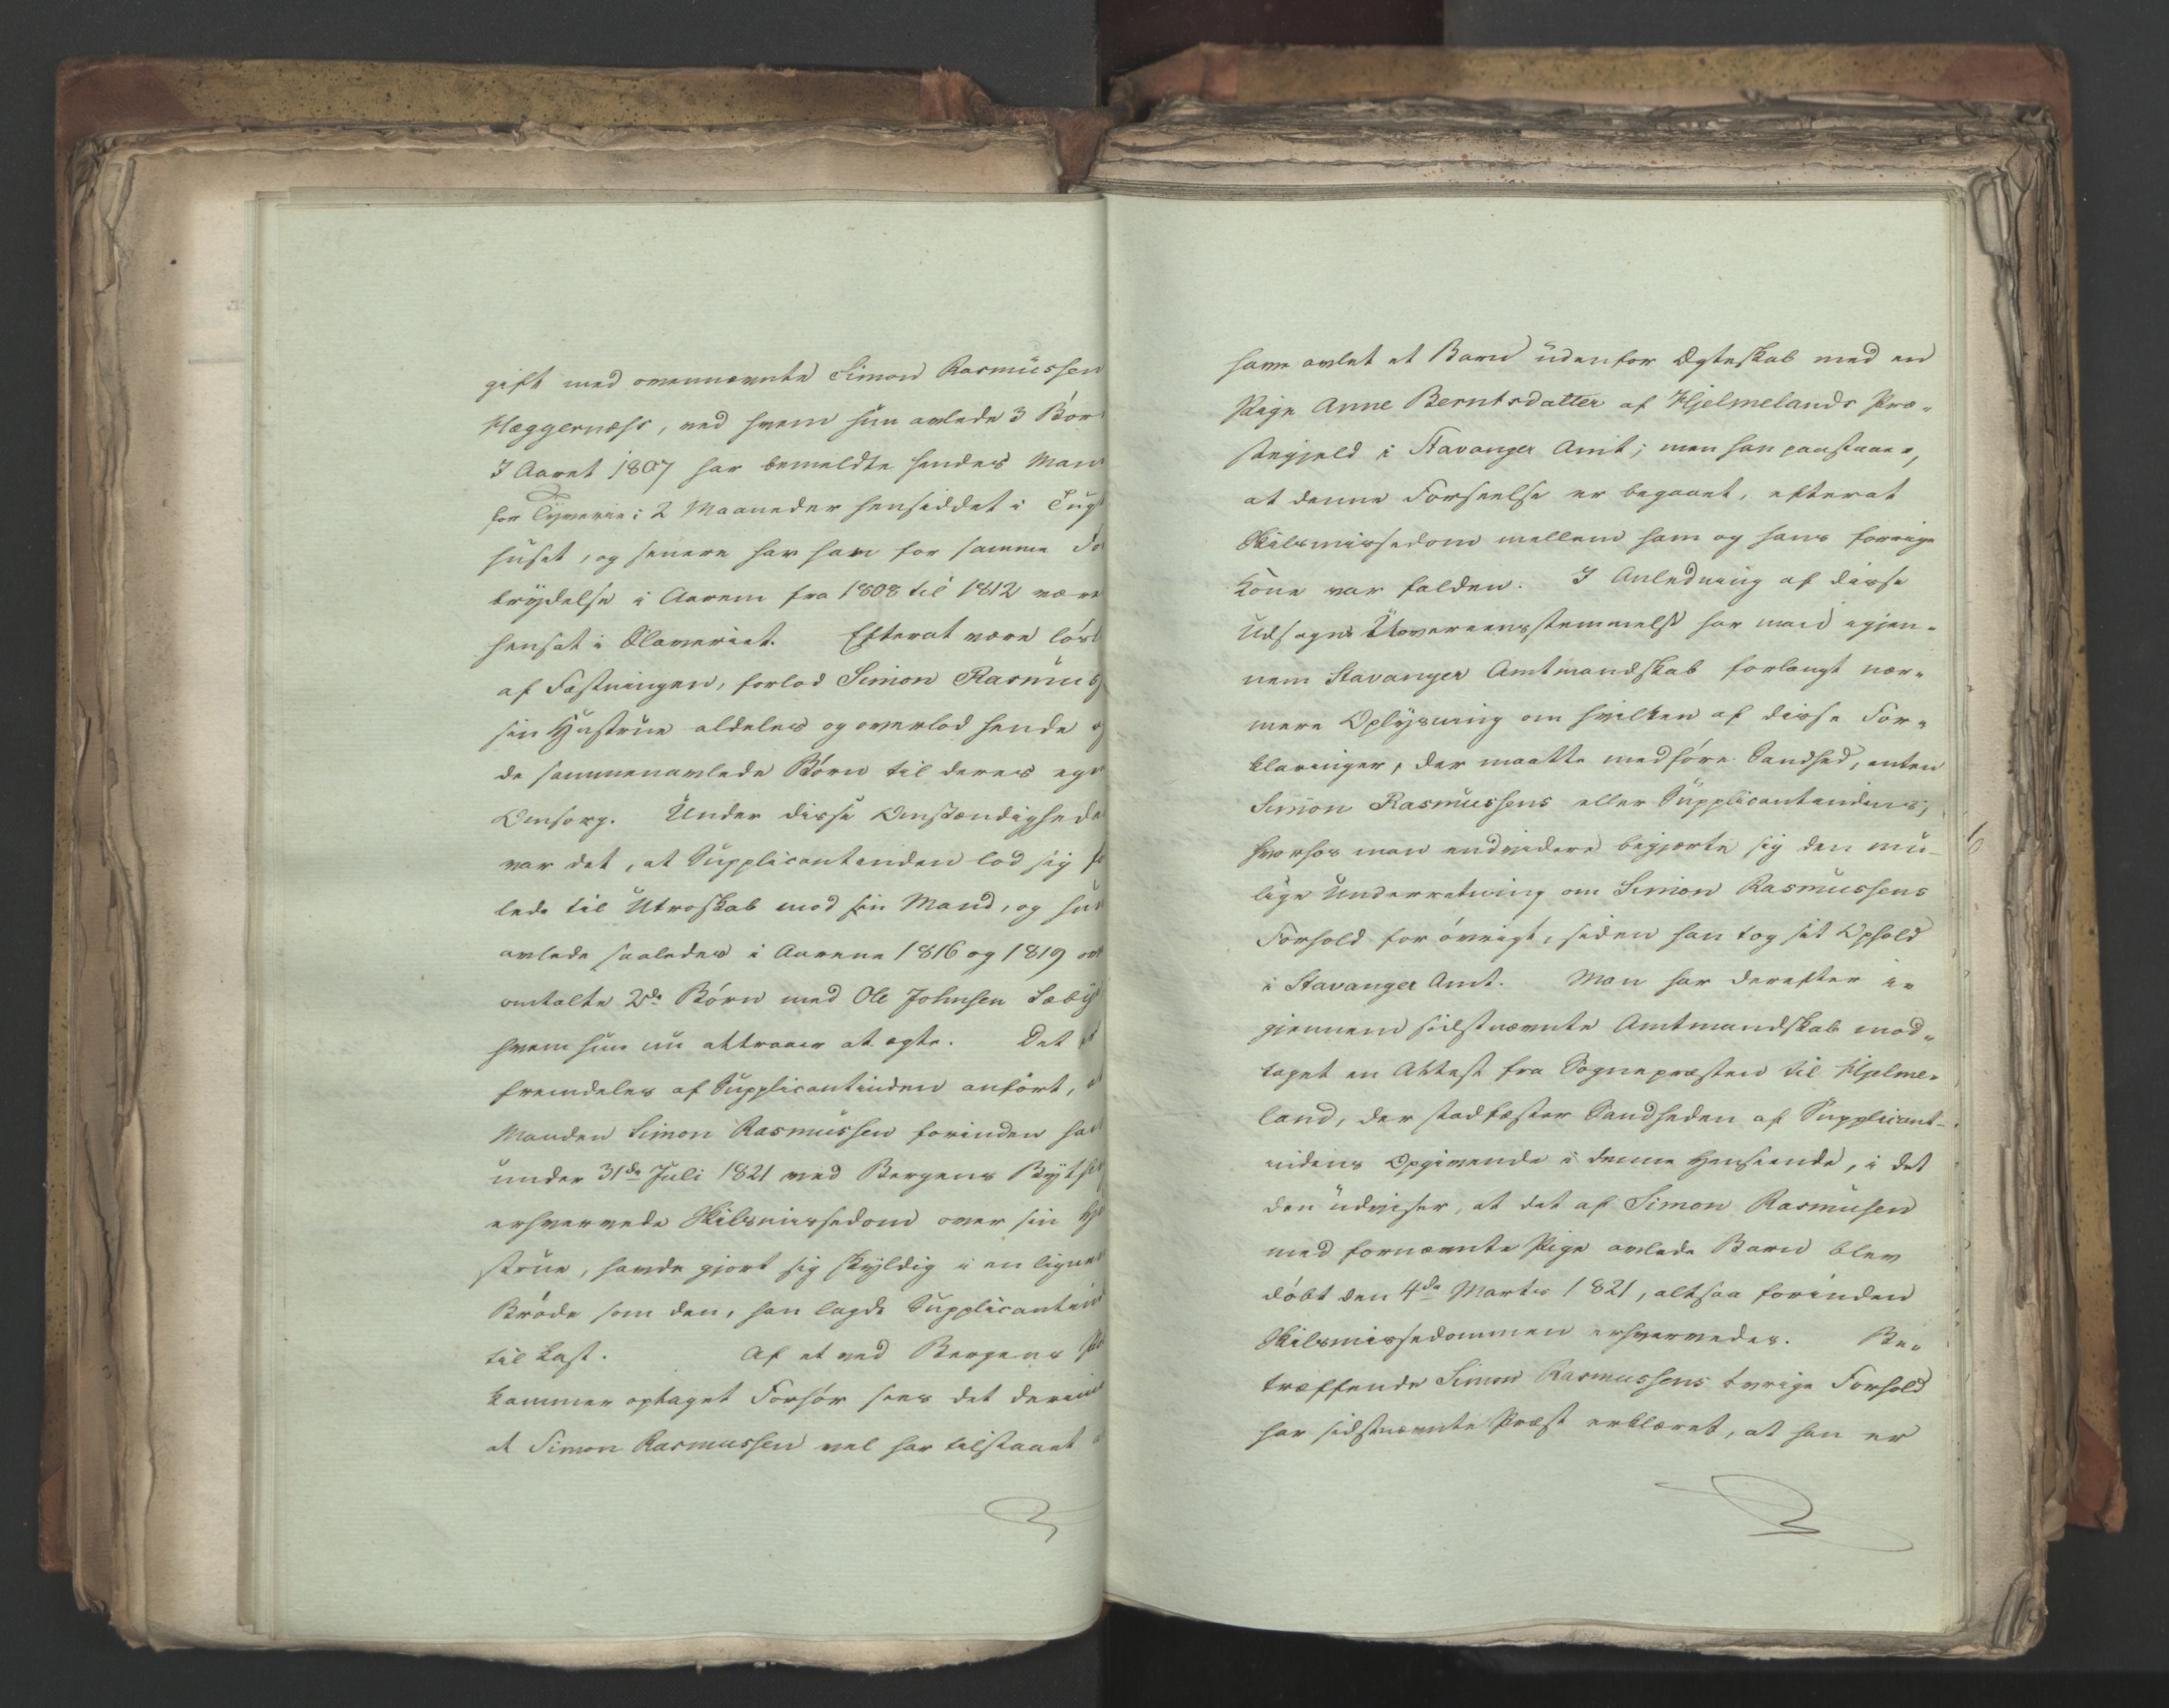 gift med ovennævnte Simon Rasmussen
Hæggernæss, ved hvem hun avlede 3 Bør
I Aaret 1807 har bemeldte hendes Man
for Tyverie i 2 Maaneder hensiddet i Tugt
huset, og senere har han for samme Fo
brydelse i Aarene fra 1808 til 1812 være
hensat i Slaveriet. Efterat være løsl
af Fæstningen, forlod Simon Rasmus
sin Hustrue aldeles og overlod hende og
de sammenavlede Børn til deres egen
Omsorg. Under disse Omstændighede
var det, at Supplicantinden lod sig for
lede til Utroskab mod sin Mand, og hun
avlede saaledes i Aarene 1816 og 1819 ov
omtalte 2de Børn med Ole Johnsen Sæby
hvem hun nu attraaer at ægte. Det er
fremdeles af Supplicantinden anført, at
Manden Simon Rasmussen forinden han
under 31de Juli 1821 ved Bergens Byth
erhvervede Skilsmissedom over sin Hu
strue, havde gjort sig skyldig i en lignen
Brøde som den, han lagde Supplicantind
til Last. Af et ved Bergens Po
kammer optaget Forhør sees det derim
at Simon Rasmussen vel har tilstaaet at
have avlet et Barn udenfor Ægteskab med en
Pige Anne Berntsdatter af Hjelmelands Præ-
stegjeld i Stavanger Amt; men han paastaaer,
at denne Forseelse er begaaet, efterat
Skilsmissedom mellem ham og hans forrige
Kone var falden. I Anledning af disse
Udsagns Uovereensstemmelse har man igjen-
nem Stavanger Amtmandskab forlangt nær-
mere Oplysning om hvilken af disse For-
klaringer, der maatte medføre Sandhed, enten
Simon Rasmussens eller Supplicantindens,
hvorhos man endvidere begjærte sig den mu-
lige Underretning om Simon Rasmussens
Forhold for øvrigt, siden han tog sit Ophold
i Stavanger Amt. Man har derefter i-
gjennem sidstnævnte Amtmandskab mod-
taget en Attest fra Sognepræsten til Hjelme-
land, der stadfæster Sandheden af Supplicant-
indens Opgivende i denne Henseende, i det
den udviser, at det af Simon Rasmusen
med fornævnte Pige avlede Barn blev
døbt den 4de Marts 1821, altsaa forinden
Skilsmissedommen erhvervedes. Be-
træffende Simon Rasmussens øvrige Forhold
har sidstnævnte Præst erklæret, at han er